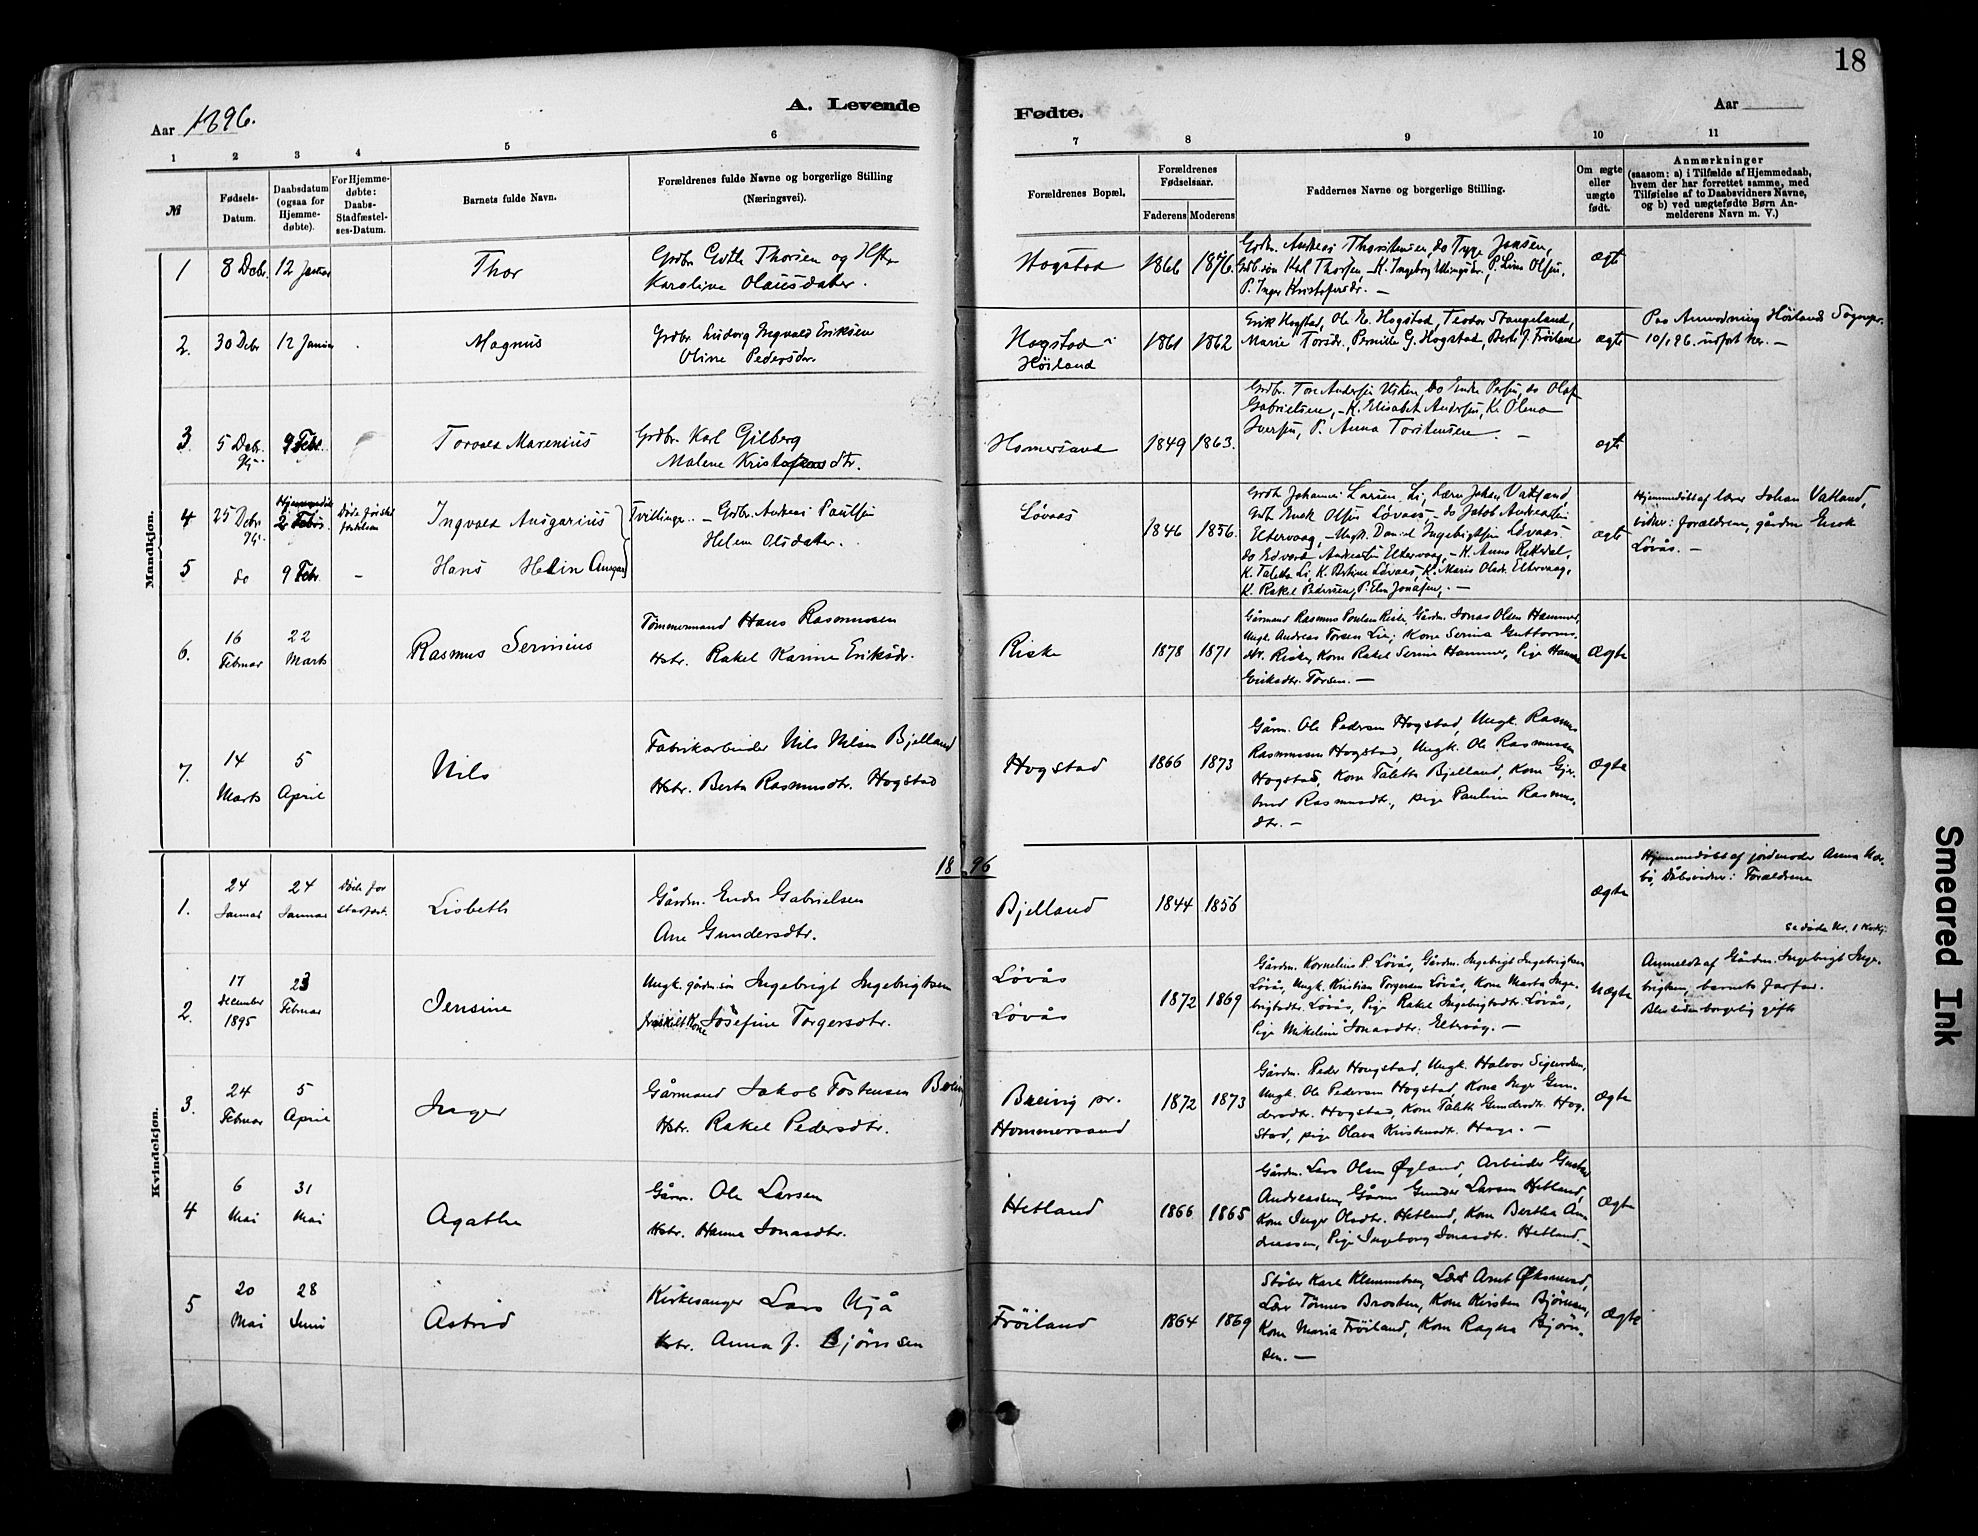 18
A. Levende
Fødte.
Aar 1896.
Aar
1 2 3 4 5 6 7 8 9 10 11
№
Fødsels-
Datum.
Daabsdatum
(ogsaa for
Hjemme-
døbte).
For Hjemme-
døbte:
Daabs-
Stadfæstel-
ses-Datum.
Barnets fulde Navn.
Forældrenes fulde Navne og borgerlige Stilling
(Næringsvei).
Forældrenes Bopæl.
Forældrenes
Fødselsaar.
Faderens Moderens
Faddernes Navne og borgerlige Stilling.
Om ægte
eller
uægte
født.
Anmærkninger
(saasom: a) i Tilfælde af Hjemmedaab,
hvem der har forrettet samme, med
Tilføielse af to Daabsvidners Navne,
og b) ved uægtefødte Børn An-
melderens Navn m. V.)
Mandkjøn.
1 8 Debr. 12 Januar
Thor
Grdbr. Thorsen og Hstr.
Karoline Olausdater.
Hogstad
1866 1876.
Grdbr. Andreas Thorstensen, do Jansen,
Grdb.søn Karl Thorsen, K. Ingeborg P. Line Olsen,
P. Inger Kristofersdr. —
ægte
2. 30 Debr 12 Januar
Magnus
Grdbr Ludvig Ingvald Eriksen
Oline Pedersdr.
Hogstad i
Høiland
1861 1862
Erik Hogstad, Ole N. Hogstad, Teodor Stangeland,
Marie Torsdr., Pernille G. Hogstad, Berte J. Frøiland
ægte
Paa Anmodning Høilands Sognepr.
10/1 96. udført her. —
3 5 Debr. 9 Febr.
Torvald Marenius
Grdbr. Karl Gilberg
Malene Kristofersdtr.
Homersand
1849 1863.
Grdbr. Tore Andersen do Endre Persen, do Olaf
Gabrielsen, K. Elisabet Andersen, K. Olena
Iversen, P. Anna Torstensen. —
ægte
4 25 Debr 2 Febr.
Døde før
Ingvald Ansgarius
Tvillinge. — Grdbr. Andreas Paulsen
Helene Olsdater.
Løvaas
1846 1856.
Grdbr Johannes Larsen Li, Lærer Johan Vatland
Grdb Enok Olsen Løvaas, do Jakob Andreassen
Eltervaag, — Ungk. Daniel Ingebrigtsen Løvaas
do Edvard Andreassen Eltervaag, — K. Anna
K. Taletta Li, K. Bertine Løvaas, K. Maris Olsdr. Eltervaag,
K. Rakel Pedersen, P. Elen Jonasen, —
ægte
Hjemmedøbt af lærer Johan Vatland,
vidner: forældrene, gårdm Enok
Løvås. —
5 do 9 Febr. –
Hans
6. 16
Februar
22
Marts
Rasmus Serinius
Tømmermand Hans Rasmussen
Hstr. Rakel Karine Eriksdr.
Riske
1878 1871
Gårmand Rasmus Poulsen Riske, Gårdm. Jonas Olsen Hammer,
Ungk. Andreas Torsen Lie; Kone Serina Guttorms-
dtr. Riske, Kone Rakel Serine Hammer, Pige Hanna
Eriksdtr. Torsen. —
Ægte
7. 14
Marts
5
April
Nils
Fabrikarbeider Nils Nilsen Bjelland
Hstr. Berta Rasmusdtr. Hogstad
Hogstad
1866 1873
Gårm. Ole Pedersen Hogstad, Ungk. Rasmus
Rasmussen Hogstad, Ungk. Ole Rasmussen
Hogstad, Kone Taletta Bjelland, Kone Gjer-
trud Rasmusdtr., pige Pauline Rasmus-
dtr. —
Ægte
1896
Kvindekjøn.
1. 24
Januar
24
Januar
Døde før
stadfæst.
Lisbeth
Gårdm. Endre Gabrielsen
Ane Gundersdtr.
Bjelland
1844 1856
Ægte
Hjemmedøbt af jordemoder Anna
Dåbsvidner: Forældrene
se døde Nr. 1 Kvkj.
2. 17
December
1895
23
Februar
Jensine
Ungk. gårdm.søn Ingebrigt Ingebrigtsen
fraskilt Kone Josefine Torgersdtr.
Løvås
Løvås
1872 1869
Gårdm. Kornelius P. Løvås, Gårdm. Ingebrigt Ingebrigtsen
Løvås, Ungk. Kristian Torgersen Løvås, Kone Marta Inge-
brigtsdtr. Løvås, Pige Rakel Ingebrigtsdtr. Løvås,
Pige Mikeline Jonasdtr. Eltervåg. —
Uægte
Anmeldt af Gårdm. Ingebrigt Inge-
brigtsen, barnets farfar.
Blev siden borgerlig gifte
3. 24
Februar
5
April
Inger
Gårmand Jakob Tostensen
Hstr. Rakel Pedersdtr.
Breivig pr.
Hommersand
1872 1873
Gårdm. Peder Hougstad, Ungk. Halvor Sigurdsen,
Ungk. Ole Pedersen Hogstad, Kone Inger Gun-
dersdtr. Hogstad, Kone Taletta Gundersdtr. Hog-
stad, pige Olava Kristensdtr. Hage. —
Ægte
4 6
Mai
31
Mai
Agathe
Gårm. Ole Larsen
Hstr. Hanna Jonasdtr.
Hetland
1866 1865
Gårdm. Lars Olsen Øgland, Arbeider Gustav
Andreassen, Gårm Gunder Larsen Hetland,
Kone Inger Olsdtr. Hetland, Kone Bertha An-
dreassen, Pige Ingeborg Jonasdtr. Hetland. —
Ægte
5 20
Mai
28
Juni
Astrid
Kirkesanger Lars Ujå
Hstr. Anna f. Bjørnsen
Frøiland
1864 1869
Støber Karl Klemmetsen, Lærer Arnt Øksnevad,
Lærer Tønnes Brosten, Kone Kirsten Bjørnsen,
Kone Maria Frøiland, Kone Ragna Bjørn-
sen. —
Ægte
Smeared Ink